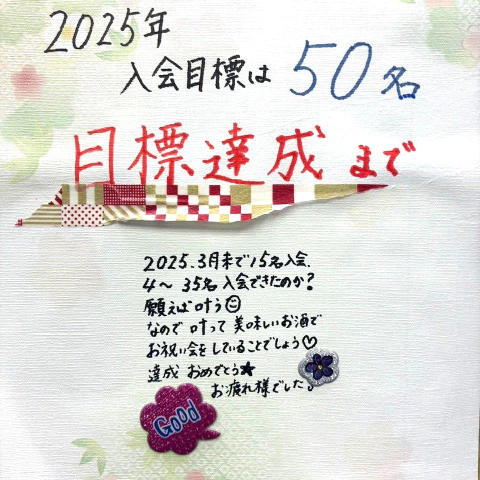 2025年
入会目標は 50名
目標達成まで
2025.3月末で15名入会.
4〜 35名入会できたのか?
願えば叶う☺
なので叶って美味しいお酒で
お祝い会をしていることでしょう♡
達成 おめでとう★
お疲れ様でした。
Good